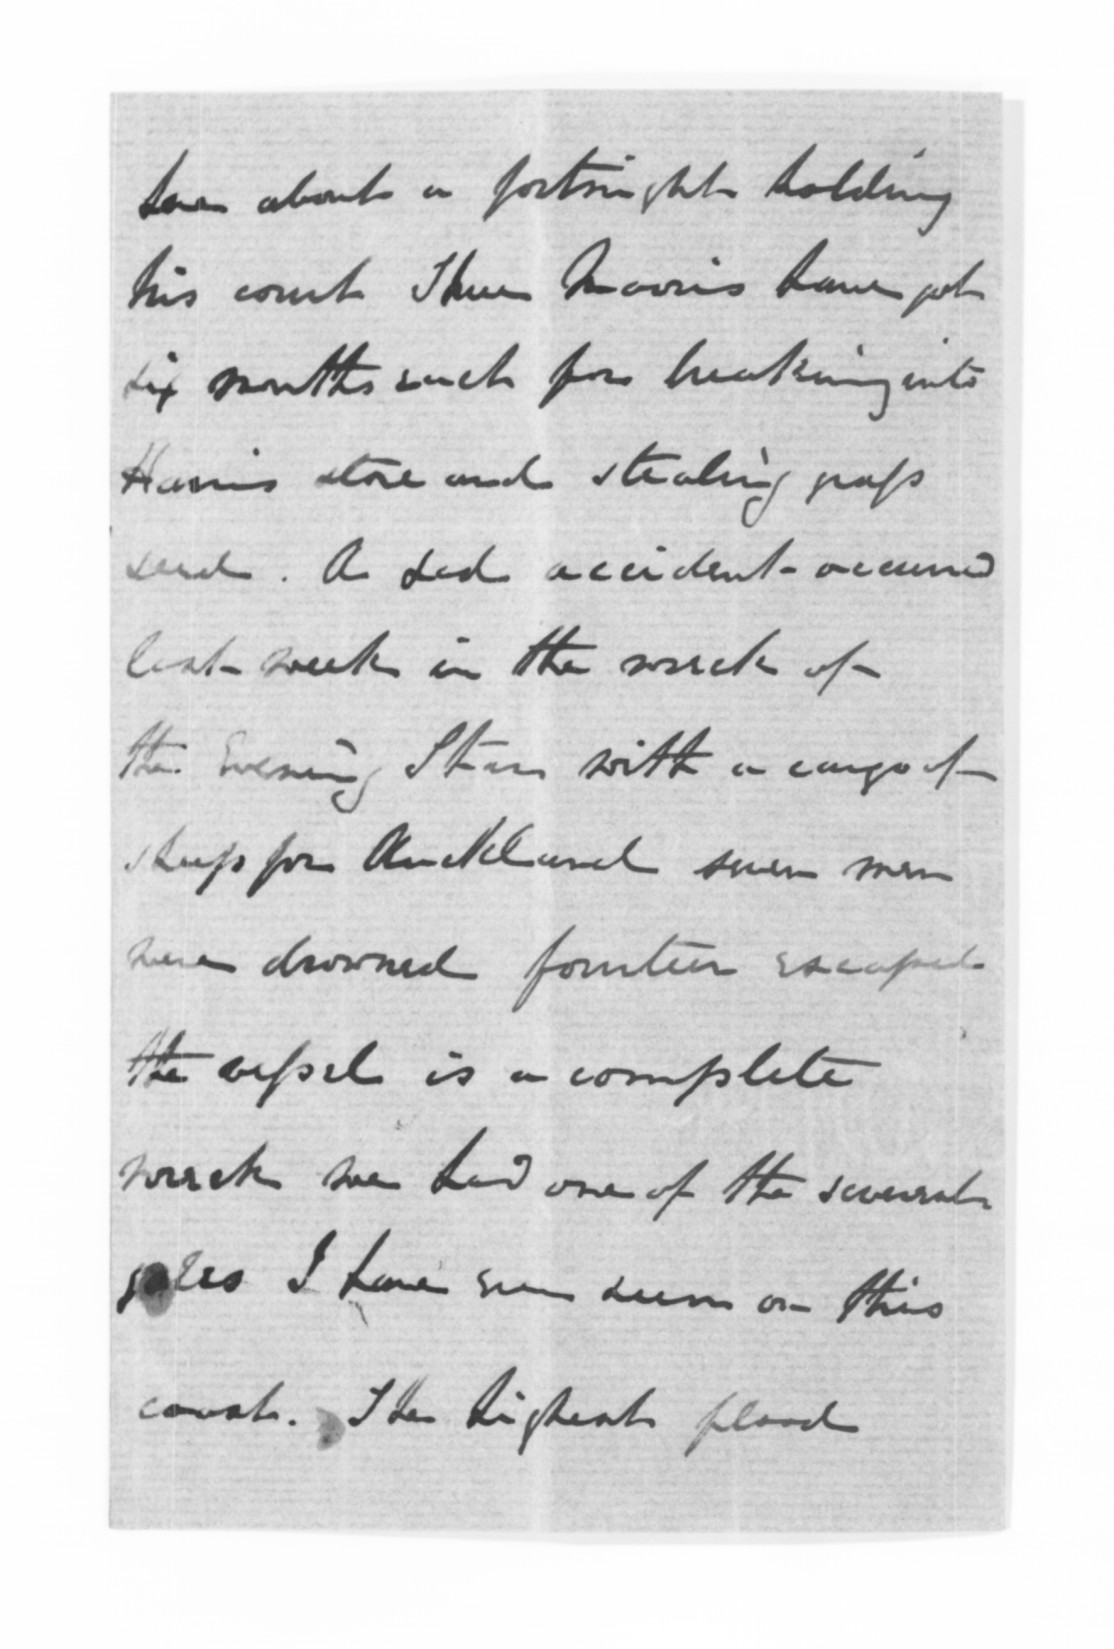 here about a fortnight holding
his court Three Maoris have got
six months each for breaking into
Harris store and stealing grass
seed. A sad accident occurred
last week in the wreck of
the Evening Star with a cargo of
sheep for Auckland seven men
were drowned fourteen escaped
the vessel is a complete
wreck we had one of the severest
gales I have ever seen on this
coast. The highest flood